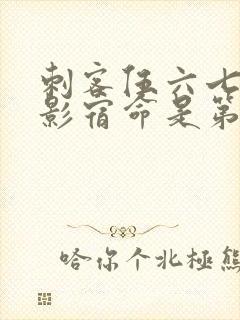 刺客伍六七
影宿命是第
哈你个北極熊